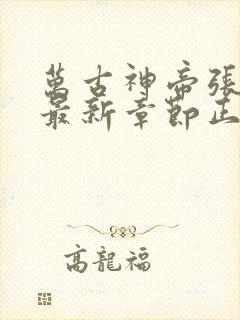 萬古神帝張
最新章節正
高龍福